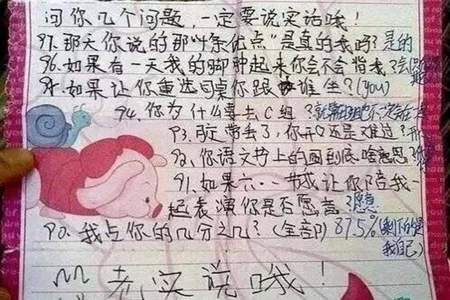 问你几个问题，一定要说实话哦！
97.那天你说的那"4条优点"是真的我吗？是的
96.如果有一天我的脚肿起来你会不会背我？会
95.如果让你重选同桌你跟谁坐？(you)
94.你为什么要去C组？
93.张带丢了，你开心还是难过？开
92.你语文书上的画到底啥意思
91.如果六·一节或让你陪我一
起表演你是否愿意？愿意
90.我占你的几分之几？(全部)87.5%(剩下的是
我自己)
老实说哦！